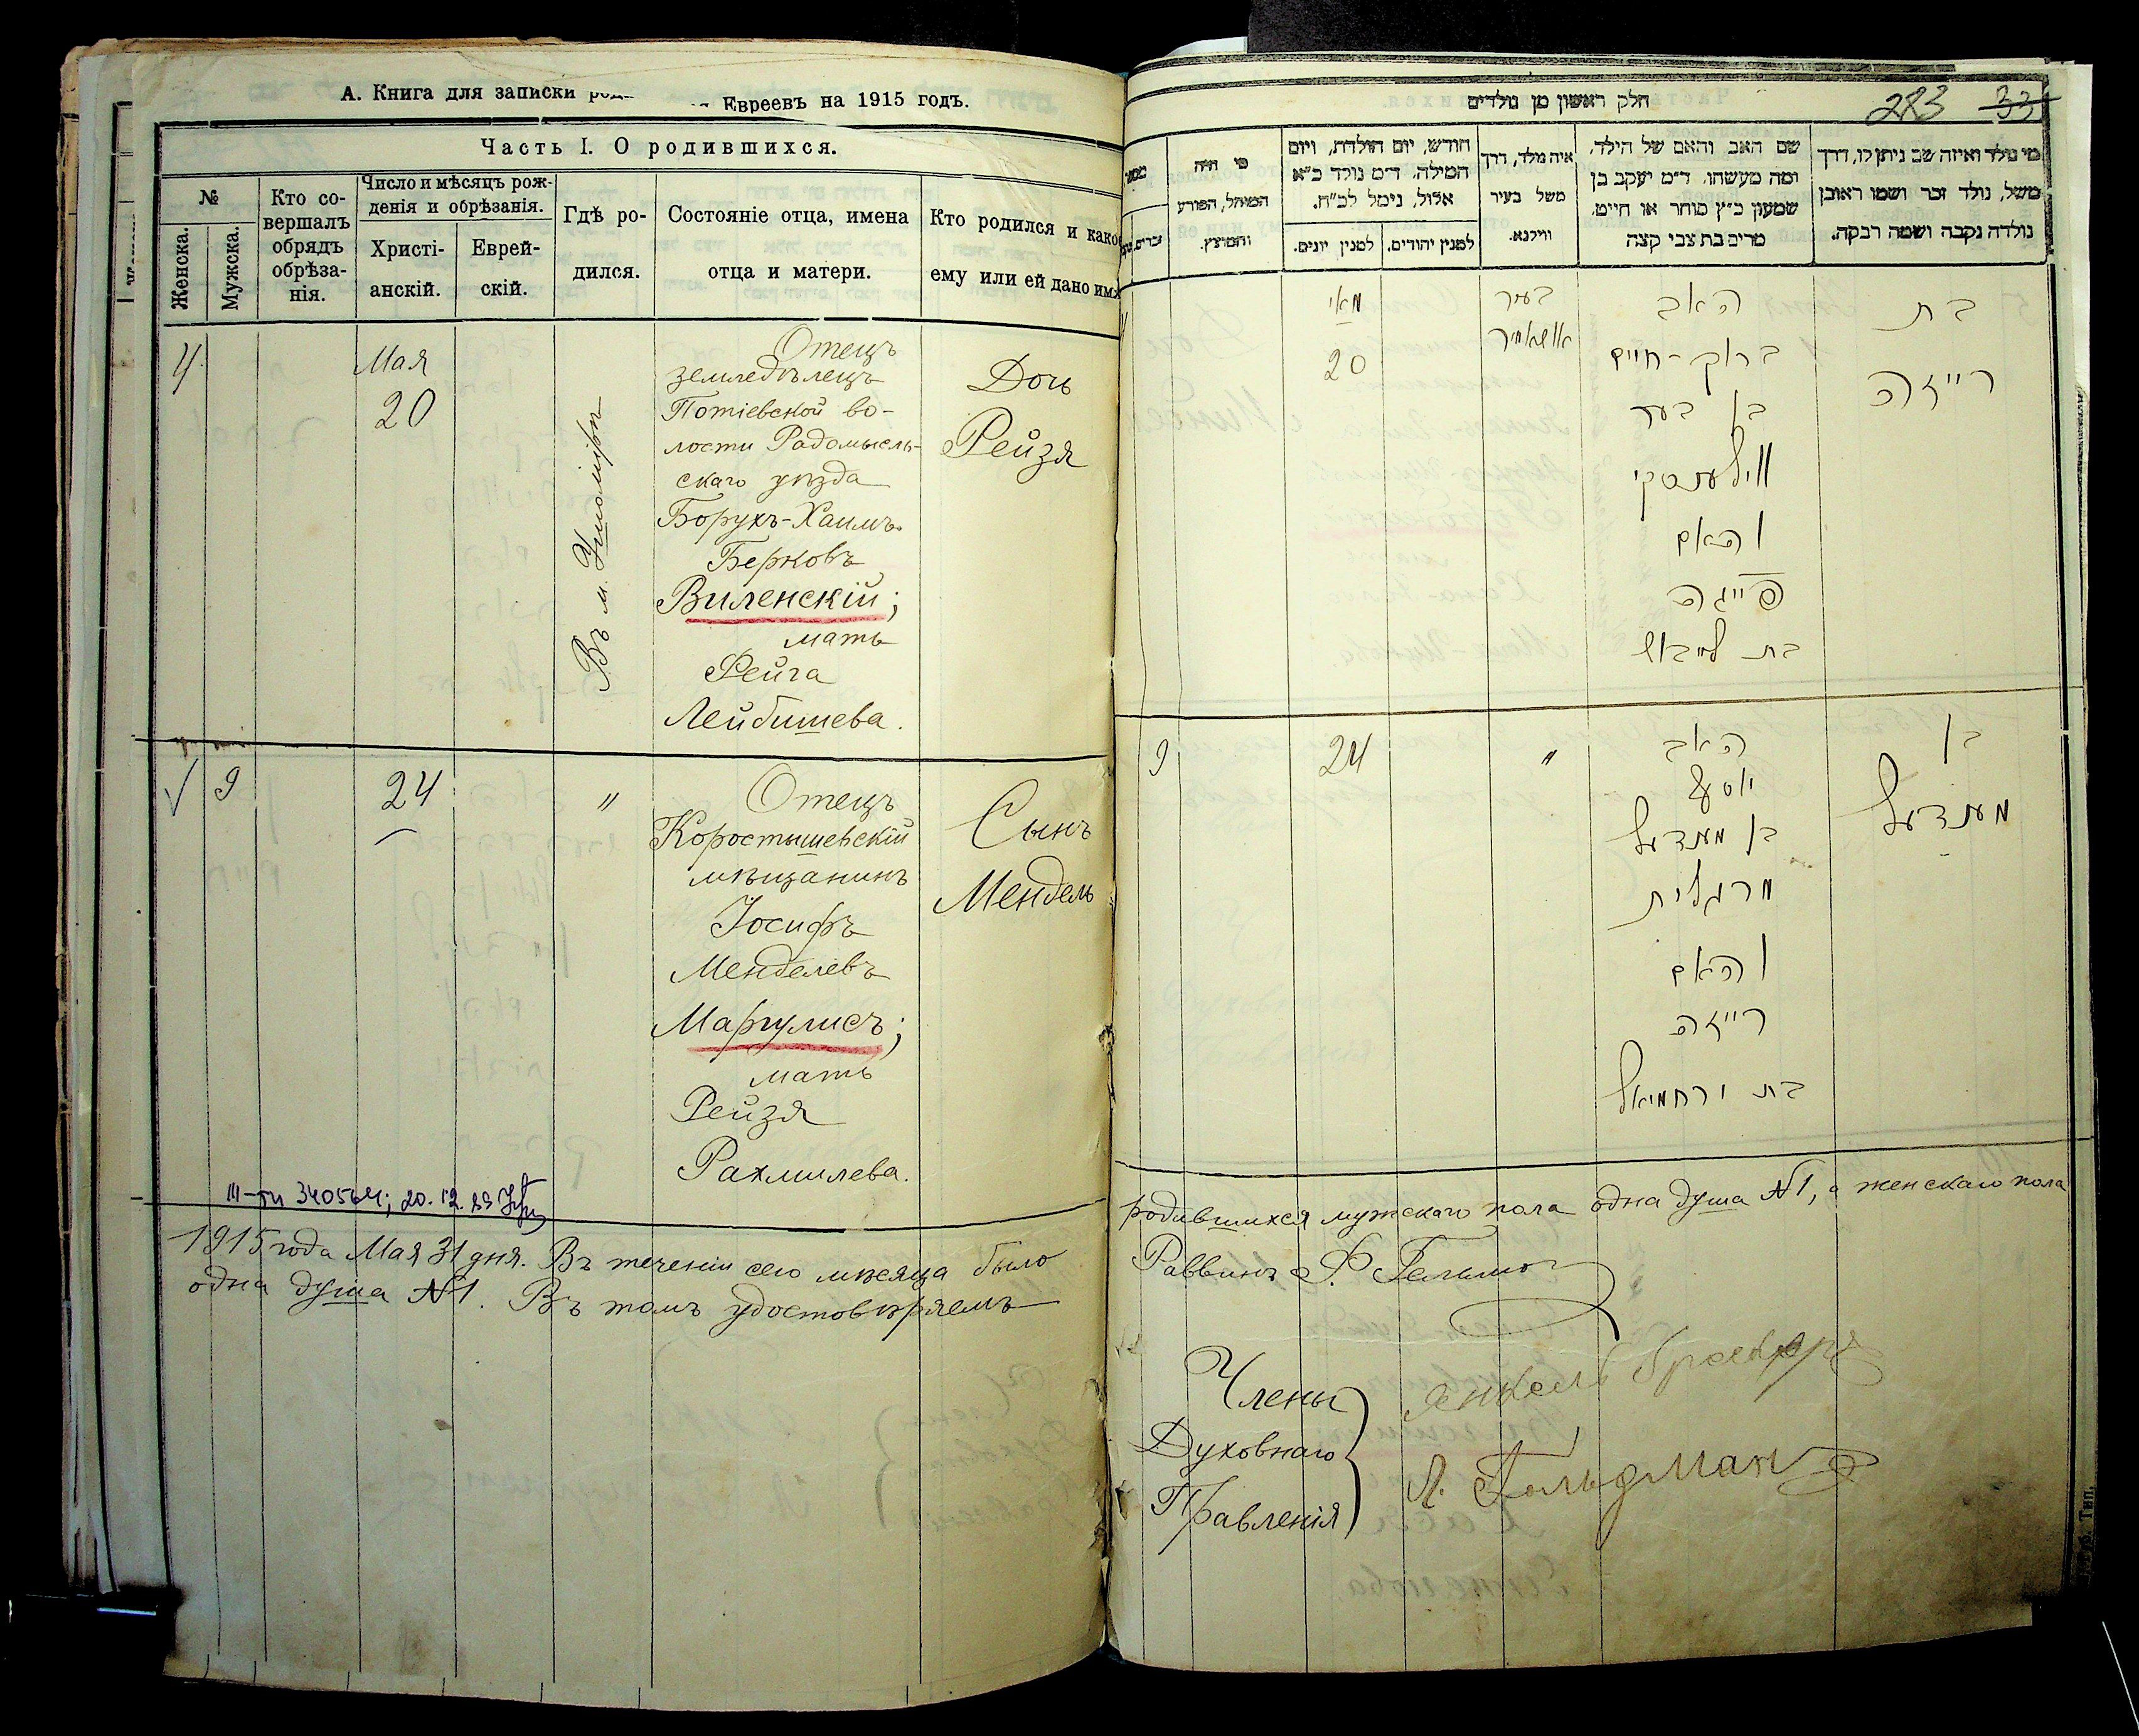 А. Книга для записки род
Евреевъ на 1915 годъ.
Часть I. О родившихся.
№
Женска.
Мужска.
Кто со-
вершалъ
обрядъ
обрѣза-
нія.
Число и мѣсяцъ рож-
денія и обрѣзанія.
Христі-
анскій.
Еврей-
скій.
Гдѣ ро-
дился.
Состояніе отца, имена
отца и матери.
Кто родился и како
ему или ей дано имя
4.
Мая
20
Въ м. Ушомірѣ
Отецъ
земледѣлецъ
Потіевской во-
лости Радомысль-
скаго уѣзда
Борухъ-Хаимъ
Берковъ
Виленскій;
мать
Фейга
Лейбишева.
Дочь
Рейзя
9
24
"
Отецъ
Коростышевскій
мѣщанинъ
Іосифъ
Менделевъ
Маргулисъ;
мать
Рейзя
Рахмилева.
Сынъ
Мендель
340564; 20.12.89
1915 года Мая 31 дня. Въ теченіи сего мѣсяца было
одна душа №1. Въ томъ удостовѣряемъ
חלק ראשון מן נולדים
283 33
מי נולד ואיזה שם ניתן לו, דרך
משל, נולד זכר ושמו ראובן
נולדה נקבה ושמה רבקה.
שם האב והאם של הילד,
ומה מעשהו. ד״מ יעקב בן
שמעון כ״ץ סוחר או חייט,
מרים בת צבי קצה
איה מלד, דרך
משל בעיר
ווילנא.
חודש, יום הולדת, ויום
המילה, ד״מ נולד כ״א
אלול, נימל לכ״ח.
למנין יהודים.
למנין יונים.
מי היה
המוהל, הפורע
והמוצץ.
בת
רייזה
האב
ברוך-חיים
בן בער
ווילענסקי
והאם
פייגה
בת לייבוש
בעיר
אושאמיר
מאי
20
בן
מענדעל
האב
יוסף
בן מענדעל
מרגלית
והאם
רייזה
בת ירחמיאל
"
24
9
родившихся мужскаго пола одна душа №1, а женскаго пола
Раввинъ
Члены
Духовнаго
Правленія
Янкель
Л. Гольдман